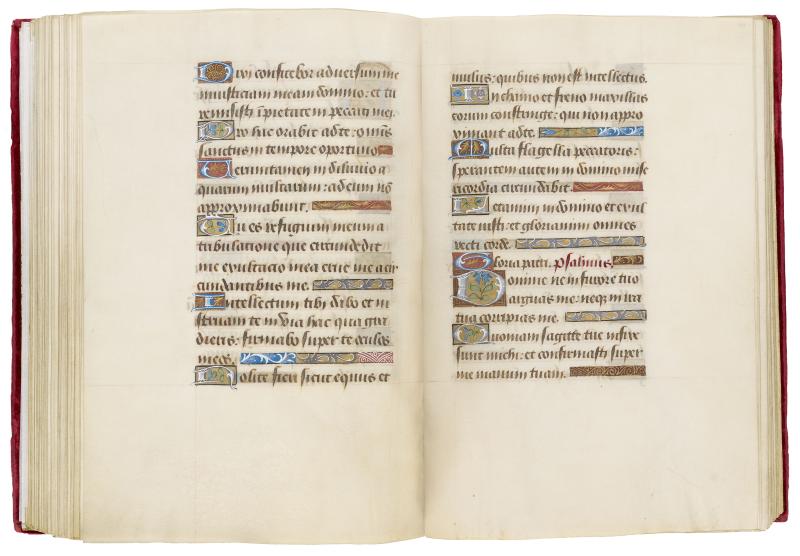 Dixi confitebor adversum me
iniusticiam meam domino: et tu
remisisti i̅pietate̅ peccati mei.
Pro hac orabit ad te: om̅is
sanctus in tempore oportuno
Verumtamen in diluvio a
quarum multarum: ad eum no̅
approximabunt.
Tu es refugium meum a
tribulatione que circundedit
me exultacio mea erue me a cir
cundantibus me.
Intellectum tibi dabo et in
struam te in via hac qua gra
dieris: firmabo super te oculos
meos.
Nolite fieri sicut equus et
mulus: quibus non est intellectus.
In chamo et freno maxillas
eorum constringe: qui non appro
ximant ad te.
Multa flagella peccatoris:
sperantem autem in domino mise
ricordia circundabit.
Letamini in domino et exul
tate iusti: et gloriamini omnes
recti corde.
Gloria patri. psalmus.
Domine ne in furore tuo
arguas me: neq̅ in ira
tua corripias me.
Quoniam sagitte tue infixe
sunt michi: et confirmasti super
me manum tuam.